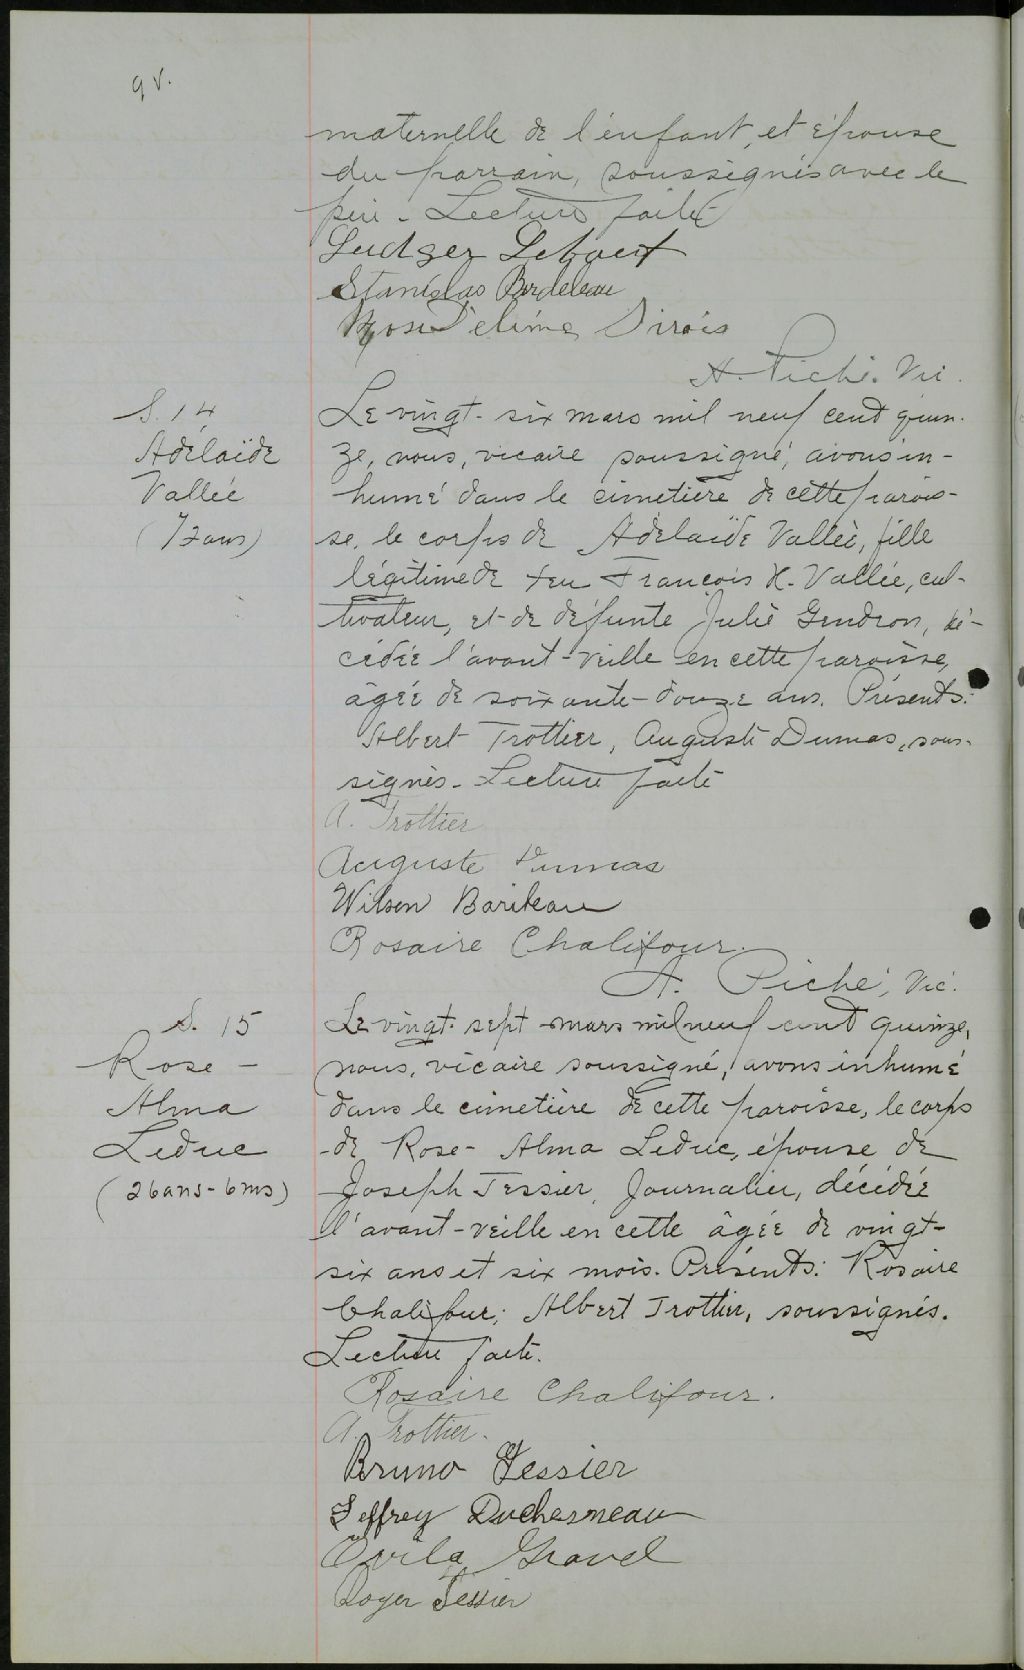 9 v.
maternelle de l'enfant, et épouse
du parrain, soussignés avec le
père. Lecture faite
Ludger Leboeuf
Stanislas Bordeleau
Rose Délima Sirois
A. Piché. Vic.
S. 14
Adélaïde
Vallée
(72 ans)
Le vingt-six mars mil neuf cent quin-
ze, nous, vicaire soussigné, avons in-
humé dans le cimetière de cette parois-
se, le corps de Adélaïde Vallée, fille
légitime de feu François X. Vallée, cul-
tivateur, et de défunte Julie Gendron, dé-
cédée l'avant-veille en cette paroisse,
âgée de soixante-douze ans. Présents:
Albert Trottier, Auguste Dumas, sous-
signés. Lecture faite
A. Trottier
Auguste Dumas
Wilson Baribeau
Rosaire Chalifour.
A. Piché, Vic.
S. 15
Rose-
Alma
Leduc
(26 ans-6 ms)
Le vingt-sept mars mil neuf cent quinze,
nous, vicaire soussigné, avons inhumé
dans le cimetière de cette paroisse, le corps
de Rose-Alma Leduc, épouse de
Joseph Tessier, Journalier, décédée
l'avant-veille en cette âgée de vingt-
six ans et six mois. Présents: Rosaire
Chalifour; Albert Trottier, soussignés.
Lecture faite.
Rosaire Chalifour.
A. Trottier.
Bruno Tessier
Jeffrey Duchesneau
Ovila Gravel
Roger Tessier